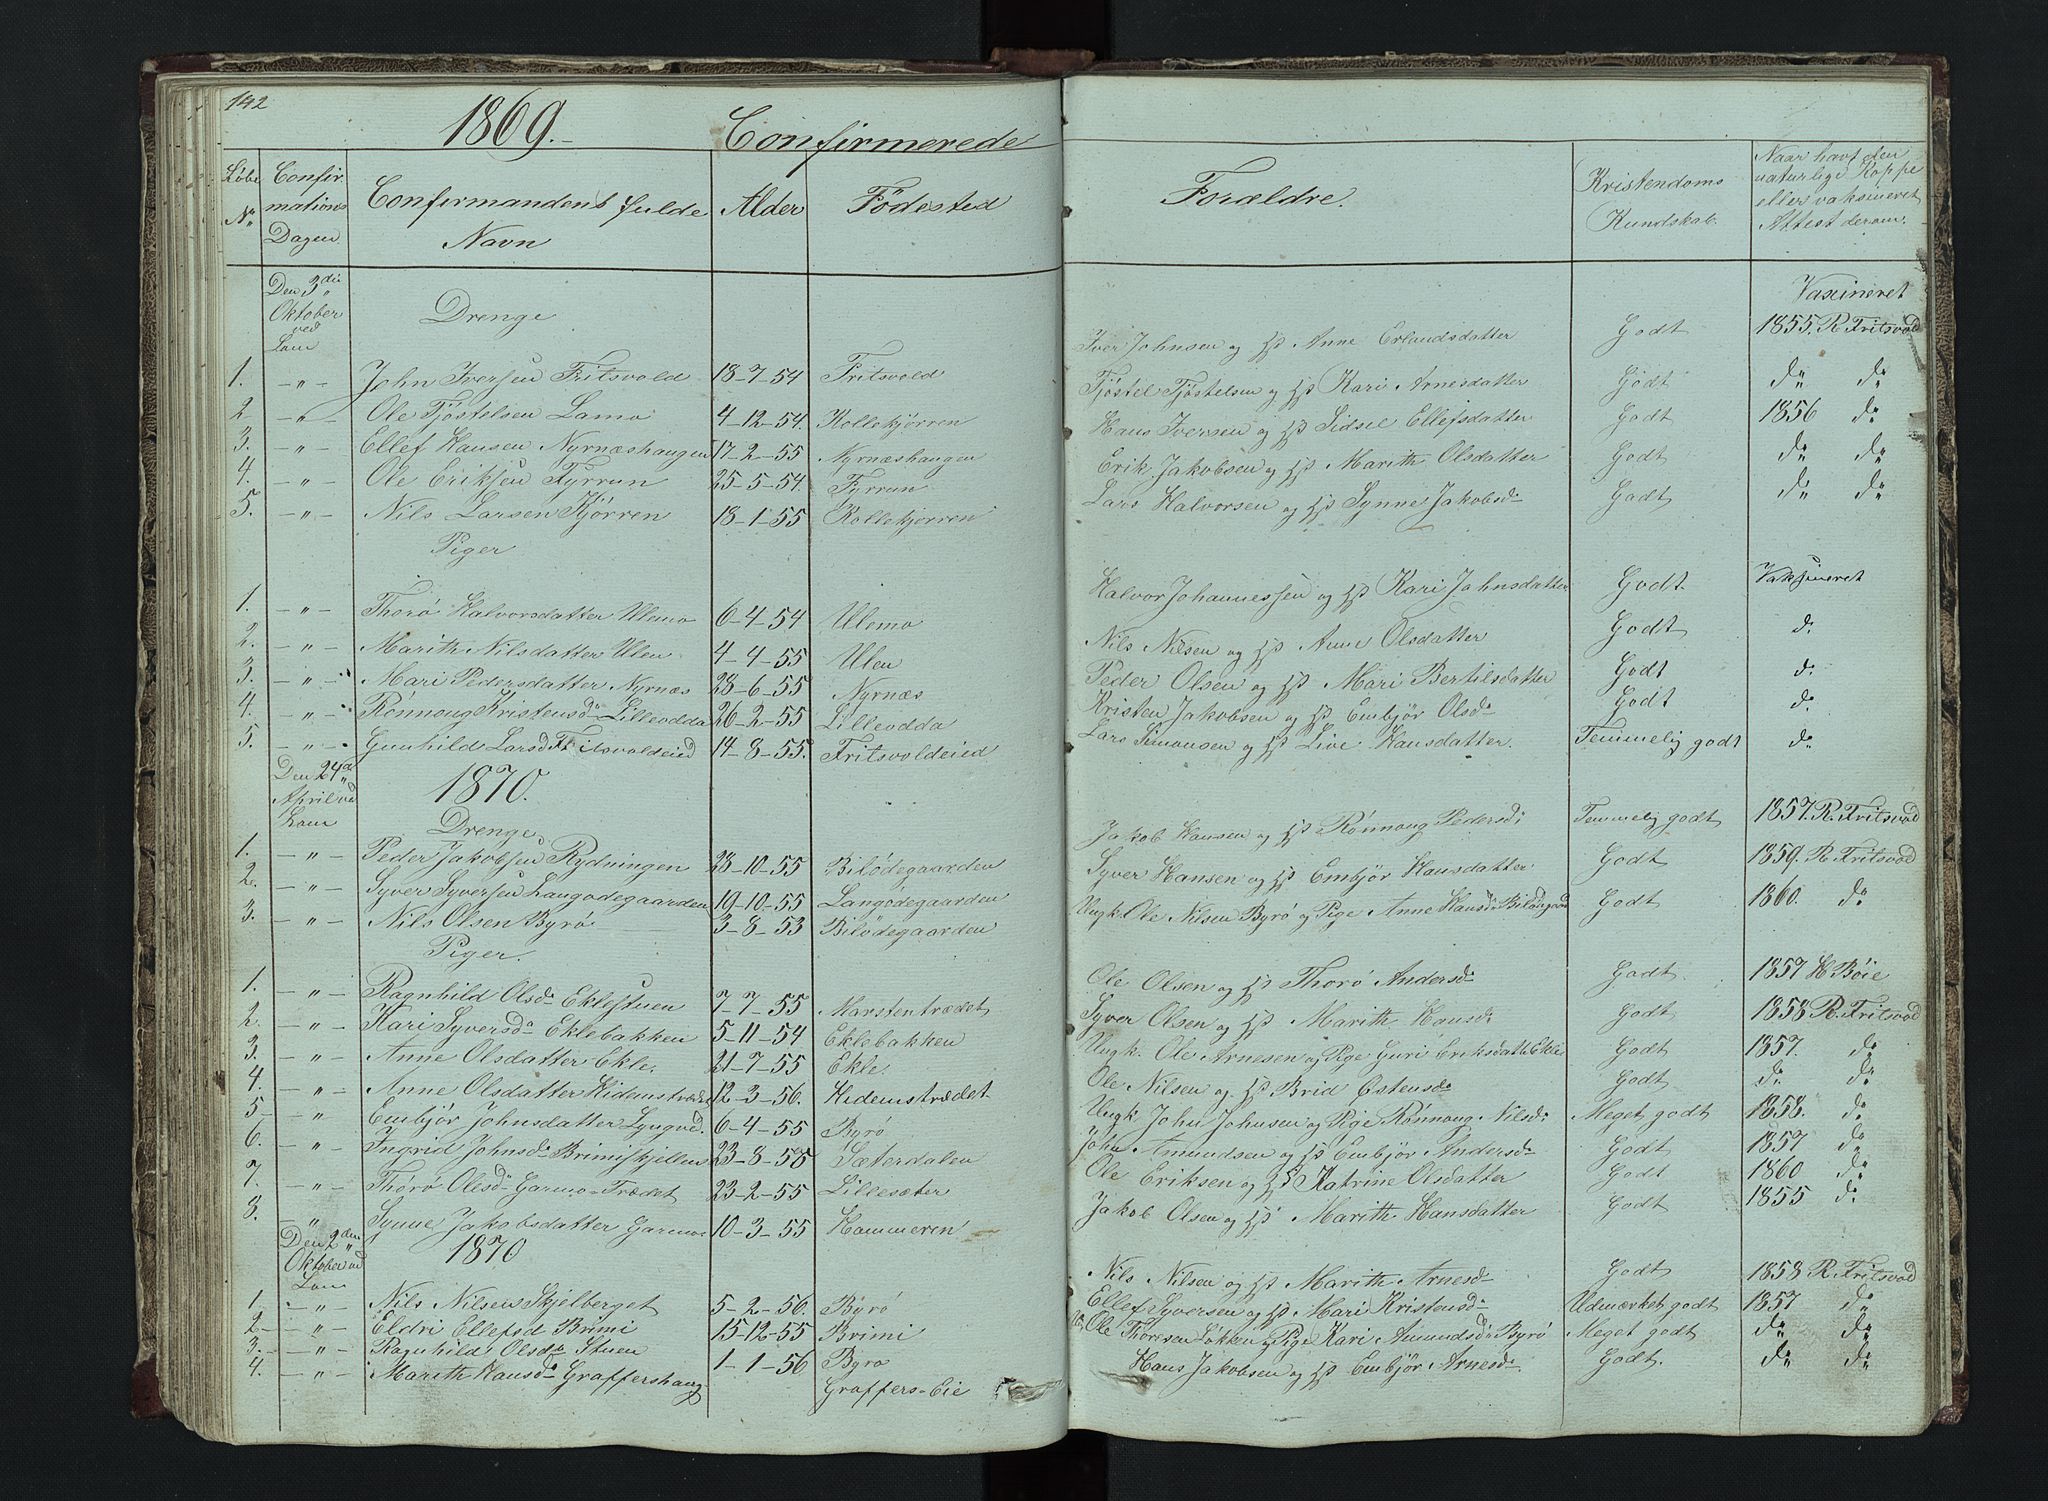 142
1869.
Confirmerede
Løbe N: Confirmations Dagen Confirmandens fulde Navn Alder Fødested Forældre. Kristendoms Kundskab. Naar havt den naturlige Koppe eller vaksineret Attest derom.
Den 3die Oktober ved Lom Drenge Vaxineret
1. -"- John Iversen Fritsvold 18-7-54 Fritsvold Iver Johnsen og H Anne Erlandsdatter Godt 1855. R. Fritsvod
2. -"- Ole Tjøstelsen Lamo 4-12-54. Kollekjørren Tjøstel Tjøstelsen og H Kari Arnesdatter Godt do do
3. -"- Ellef Hansen Nyrnæshaugen 17-2-55 Nyrnæshaugen Hans Iversen og H Sidsel Ellefsdatter Godt 1856 do
4. -"- Ole Eriksen Fyrrun 25-5-54. Fyrrun Erik Jakobsen og H Marith Olsdatter Godt do do
5. -"- Nils Larsen Kjørren 18-1-55 Kollekjørren Lars Halvorsen og H Synne Jakobsd: Godt do do
Piger
1. -"- Thorø Halvorsdatter Ulemo 6-4-54 Ulemo Halvor Johannessen og H Kari Johnsdatter Godt. Vaksineret
2. -"- Marith Nilsdatter Ulen 4-4-55 Ulen Nils Nilsen og H Anne Olsdatter Godt d:
3. -"- Mari Pedersdatter Nyrnæs 28-6-55 Nyrnæs Peder Olsen og H Mari Bertilsdatter Godt d:
4. -"- Rønnoug Kristensd: Lillevdda 26-2-55 Lillevdda Kristen Jakobsen og H Embjør Olsd: Godt d:
5. -"- Gunhild Larsd: Fritsvoldeied 14-8-55. Fritsvoldeied Lars Simonsen og H Live Hansdatter. Temmelig godt d:
Den 24d April ved Lom 1870. Drenge
1. -"- Peder Jakobsen Rydningen 28-10-55 Bilødegaarden Jakob Hansen og H Rønnoug Pedersd: Temmelig godt 1857. R. Fritsvod
2. -"- Syver Syversen Langødegaarden 19-10-55 Langødegaarden Syver Hansen og H Embjør Hansdatter Godt 1859. R. Fritsvod
3. -"- Nils Olsen Byrø 3-8-53 Bilødegaarden Ungk. Ole Nilsen Byrø og Pige Anne Hansd: Biløegaard Godt 1860. do
Piger.
1. -"- Ragnhild Olsd: Eklestuen 7-7-55 Marstentrædet Ole Olsen og H Thorø Andersd: Godt. 1857 H Bøie
2. -"- Kari Syversd: Eklebakken 5-11-54 Eklebakken Syver Olsen og H Marith Hansd: Godt 1858 R. Fritsvod
3. -"- Anne Olsdatter Ekle. 21-7-55 Ekle. Ungk. Ole Arnesen og Pige Guri Eriksdatt: Ekle Godt 1857. do
4. -"- Anne Olsdatter Hidemstrædet 12-3-56. Hidemstrædet Ole Nilsen og H Brid Østensd: Godt do. do
5 -"- Embjør Johnsdatter Lyngved. 6-4-55 Byrø Ungk. John Johnsen og Pige Rønnoug Nilsd: Meget godt 1858. do
6. -"- Ingrid Johnsd: Brimiskjellen 23-8-55 Sæterdalen John Amundsen og H Embjør Andersd: Godt 1857 do
7. -"- Thorø Olesd: Garmo-Trædet 23-2-55 Lillesæter Ole Eriksen og H Katrine Olsdatter Godt 1860 do
8. " Synne Jakobsdatter Garmo. 10-3-55 Hammeren Jakob Olsen og H Marith Hansdatter Godt 1855 d:
Den 2den Oktober ved Lom 1870
1. -"- Nils Nilsen Skjelberget 5-2-56. Byrø Nils Nilsen og H Marith Arnesd: Godt 1858 R. Fritsvod
2 -"- Eldri Ellefsd Brimi 15-12-55 Brimi Ellef Syversen og H Mari Kristensd: Udmærket godt 1857 do
3. -"- Ragnhild Olsd: Stuen 1-1-56 Byrø Ole Thoresen Løkken Pige Kari Amundsd: Byrø Meget godt do do
4. -"- Marith Hansd: Graffershaug Graffers-Eie Hans Jakobsen og H Embjør Arnesd: Godt. do do